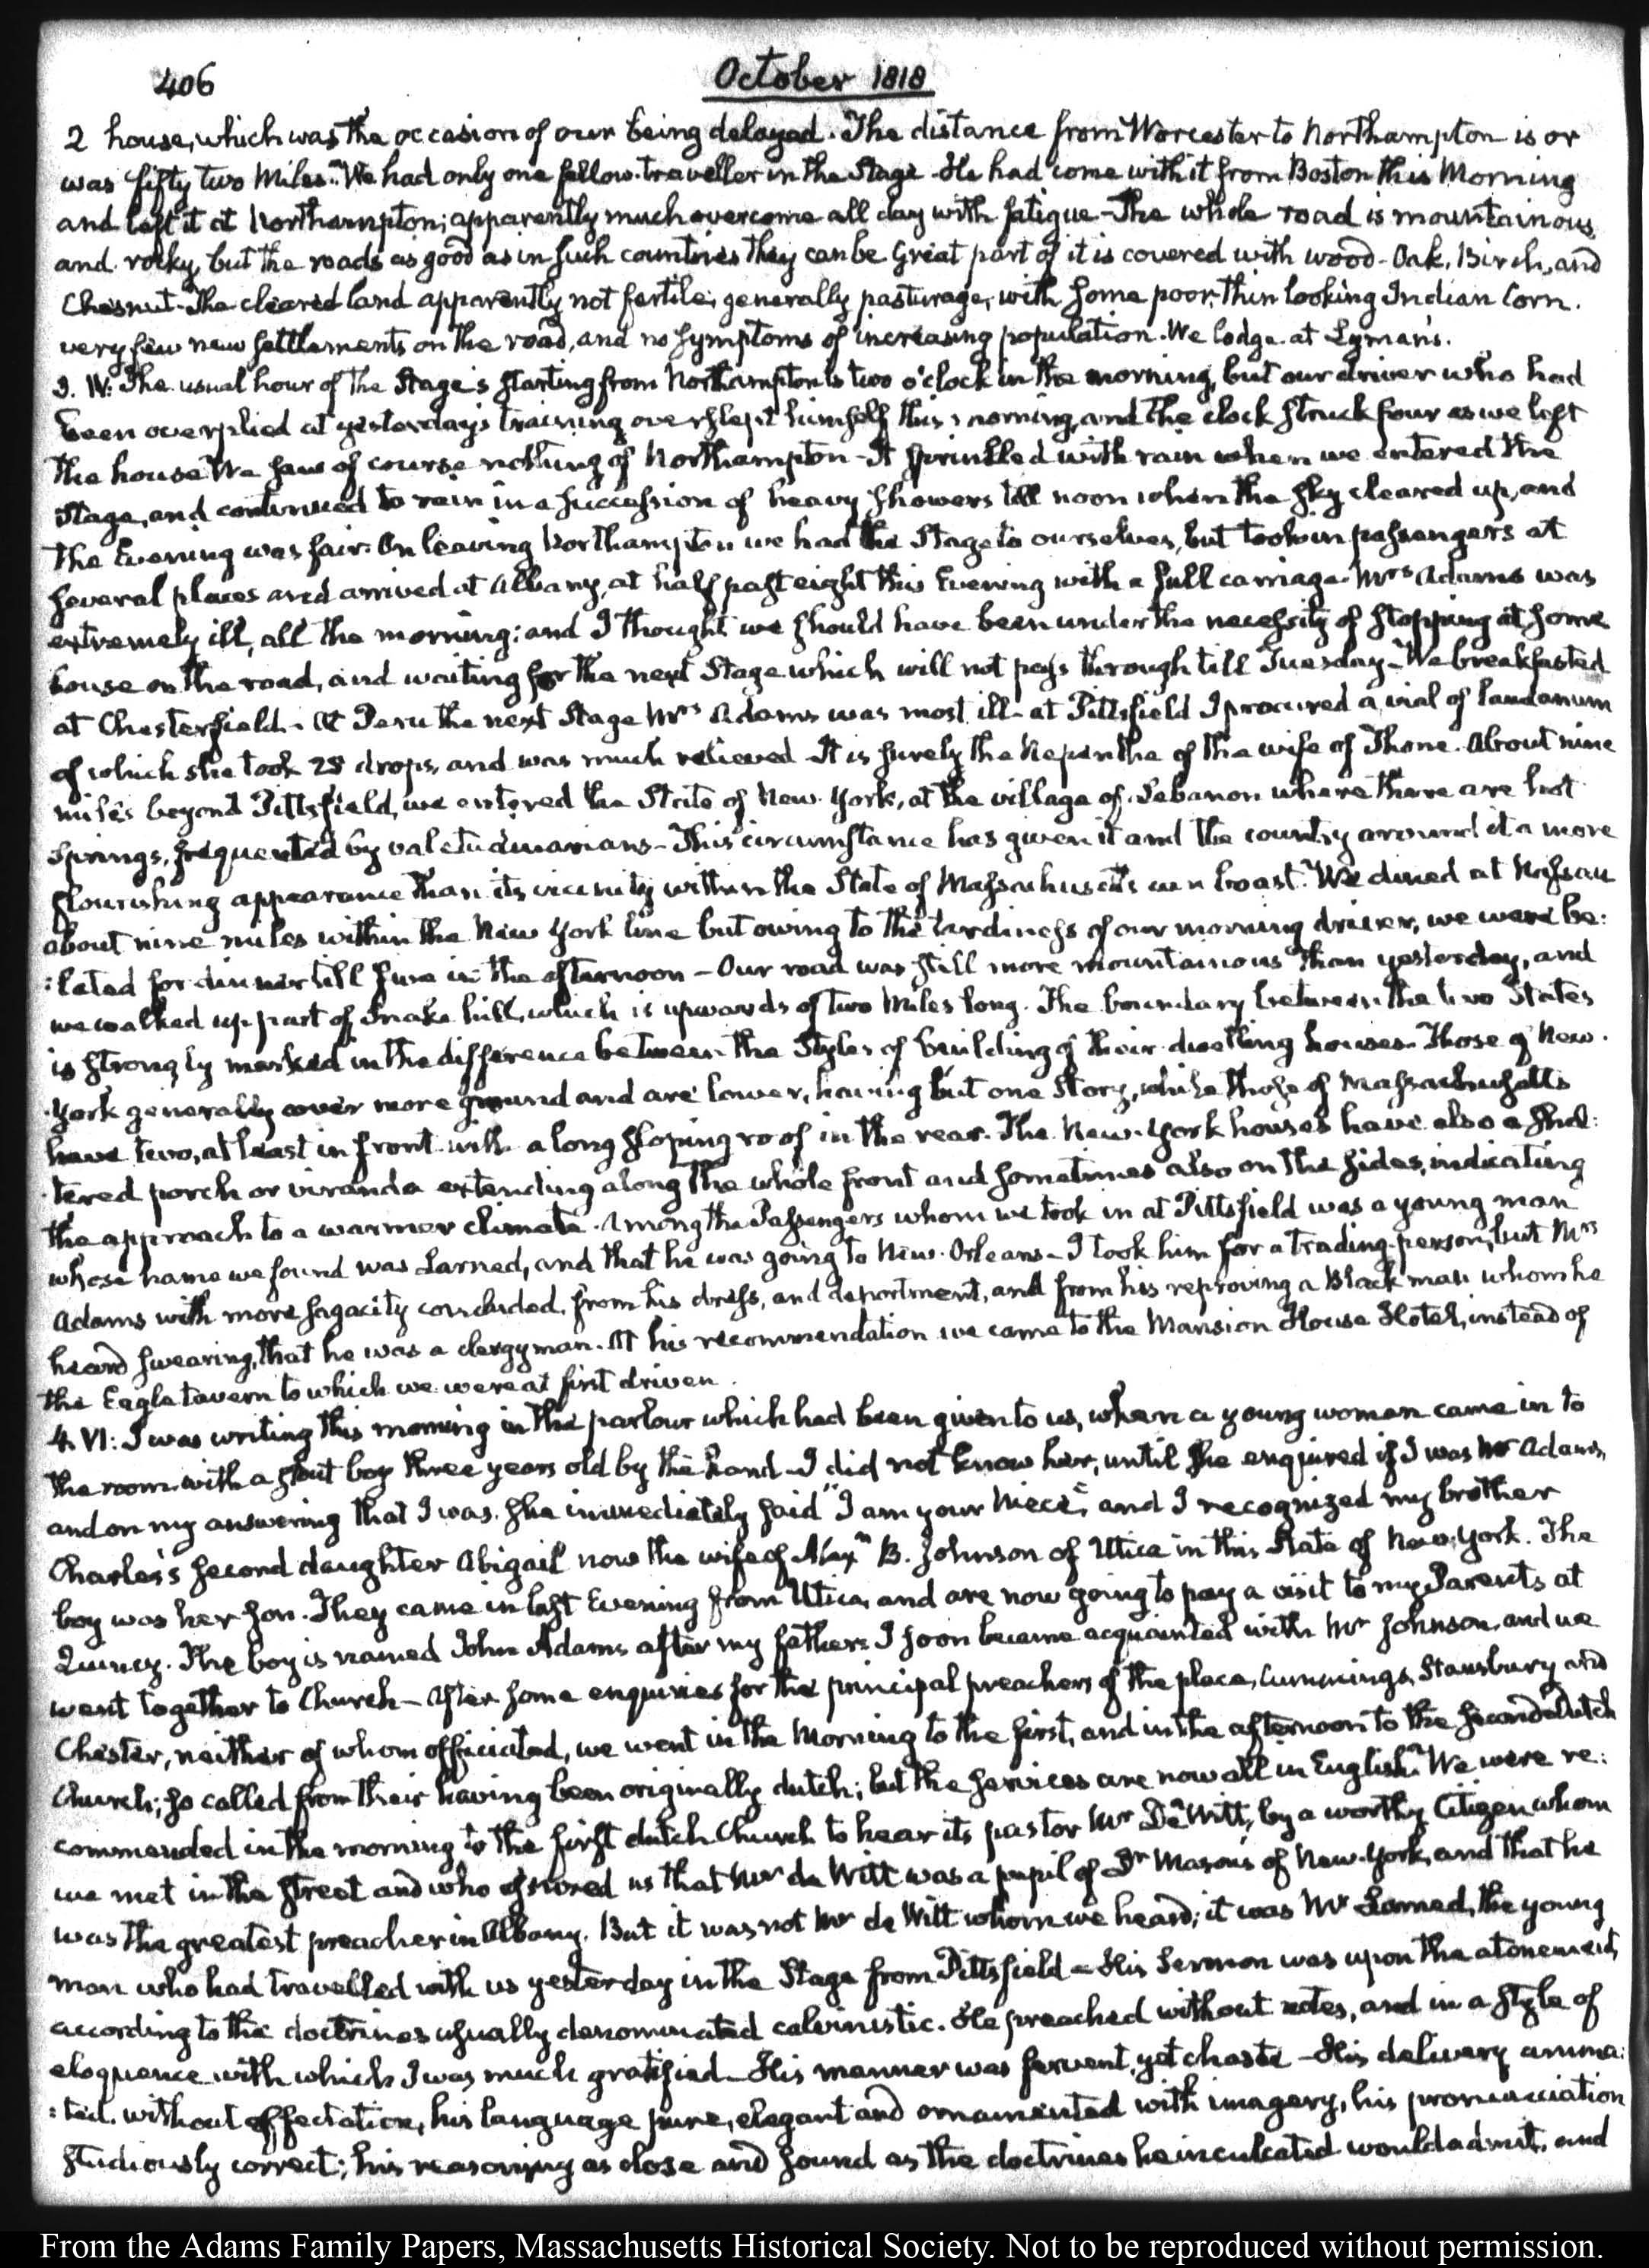 406
October 1818
2 house, which was the occasion of our being delayed. The distance from Worcester to Northampton is or
was fifty two Miles. We had only one fellow-traveller in the Stage. He had come with it from Boston this Morning
and left it at Northampton; apparently much overcome all day with fatigue – The whole road is mountainous
and rocky, but the roads as good as in such countries they can be Great part of it is covered with wood – Oak, Birch, and
Chesnut – The cleared land apparently not fertile; generally pasturage, with some poor, thin looking Indian Corn.
very few new settlements on the road, and no symptoms of increasing population. We lodge at Lyman's.
3. IV: The usual hour of the Stage's starting from Northampton is two o'clock in the morning, but our driver who had
been over plied at yesterday's training overslept himself this morning, and the clock struck four as we left
the house We saw of course nothing of Northampton – It sprinkled with rain when we entered the
Stage, and continued to rain in a succession of heavy showers till noon when the sky cleared up, and
the Evening was fair. On leaving Northampton we had the Stage to ourselves, but took in passengers at
several places and arrived at Albany, at half past eight this Evening with a full carriage. Mrs Adams was
extremely ill, all the morning; and I thought we should have been under the necessity of stopping at some
house on the road, and waiting for the next Stage which will not pass through till Tuesday – We breakfasted
at Chesterfield. – At Peru the next Stage Mrs Adams was most ill – at Pittsfield I procured a vial of laudanum
of which she took 25 drops, and was much relieved – It is surely the Nepenthe of the wife of Thone. About nine
miles beyond Pittsfield, we entered the State of New-York, at the village of Lebanon where there are hot
springs, frequented by valetudinarians – This circumstance has given it and the country around it a more
flourishing appearance than its vicinity within the State of Massachusetts can boast. We dined at Nassau
about nine miles within the New York line but owing to the tardiness of our morning driver, we were be:
:lated for dinner till five in the afternoon – Our road was still more mountainous than yesterday, and
we walked up part of Snake hill, which is upwards of two Miles long. The boundary between the two States
is strongly marked in the difference between the Styles of building of their dwelling houses. Those of New-
York generally cover more ground and are lower, having but one Story, while those of Massachusetts
have two, at least in front with a long sloping roof in the rear. The New-York houses have also a shel:
:tered porch or viranda extending along the whole front and sometimes also on the sides, indicating
the approach to a warmer climate. Among the Passengers whom we took in at Pittsfield was a young man
whose name we found was Larned, and that he was going to New-Orleans – I took him for a trading-person, but Mrs
Adams with more sagacity concluded, from his dress, and deportment, and from his reproving a Black man whom he
heard swearing, that he was a clergyman. At his recommendation we came to the Mansion House Hotel, instead of
the Eagle tavern to which we were at first driven.
4. VI: I was writing this morning in the parlour which had been given to us, when a young woman came in to
the room with a stout boy three years old by the hand – I did not know her, until she enquired if I was Mr Adams,
and on my answering that I was. She immediately said "I am your Niece", and I recognized my brother
Charles's second daughter Abigail now the wife of Alexr B. Johnson of Utica in this State of New-York. The
boy was her son. They came in last Evening from Utica, and are now going to pay a visit to my Parents at
Quincy. The boy is named John Adams, after my father. I soon became acquainted with Mr Johnson, and we
went together to Church – After some enquiries for the principal preachers of the place, Cummings, Stansbury and
Chester, neither of whom officiated, we went in the Morning to the first, and in the afternoon to the second Dutch
Church; so called from their having been originally dutch; but the services are now all in English. We were re:
commended in the morning to the first dutch Church to hear its pastor Mr De Witt, by a worthy Citizen whom
we met in the Street and who assured us that Mr de Witt was a pupil of Dr Mason's of New-York, and that he
was the greatest preacher in Albany. But it was not Mr de Witt whom we heard; it was Mr Larned, the young
man who had travelled with us yesterday in the Stage from Pittsfield – His Sermon was upon the atonement,
according to the doctrines usually denominated calvinistic. He preached without notes, and in a style of
eloquence with which I was much gratified – His manner was fervent, yet chaste – His delivery anima:
:ted, without affectation, his language pure, elegant and ornamented with imagery, his pronunciation
studiously correct; his reasoning as close and sound as the doctrines he inculcated would admit, and
From the Adams Family Papers, Massachusetts Historical Society. Not to be reproduced without permission.